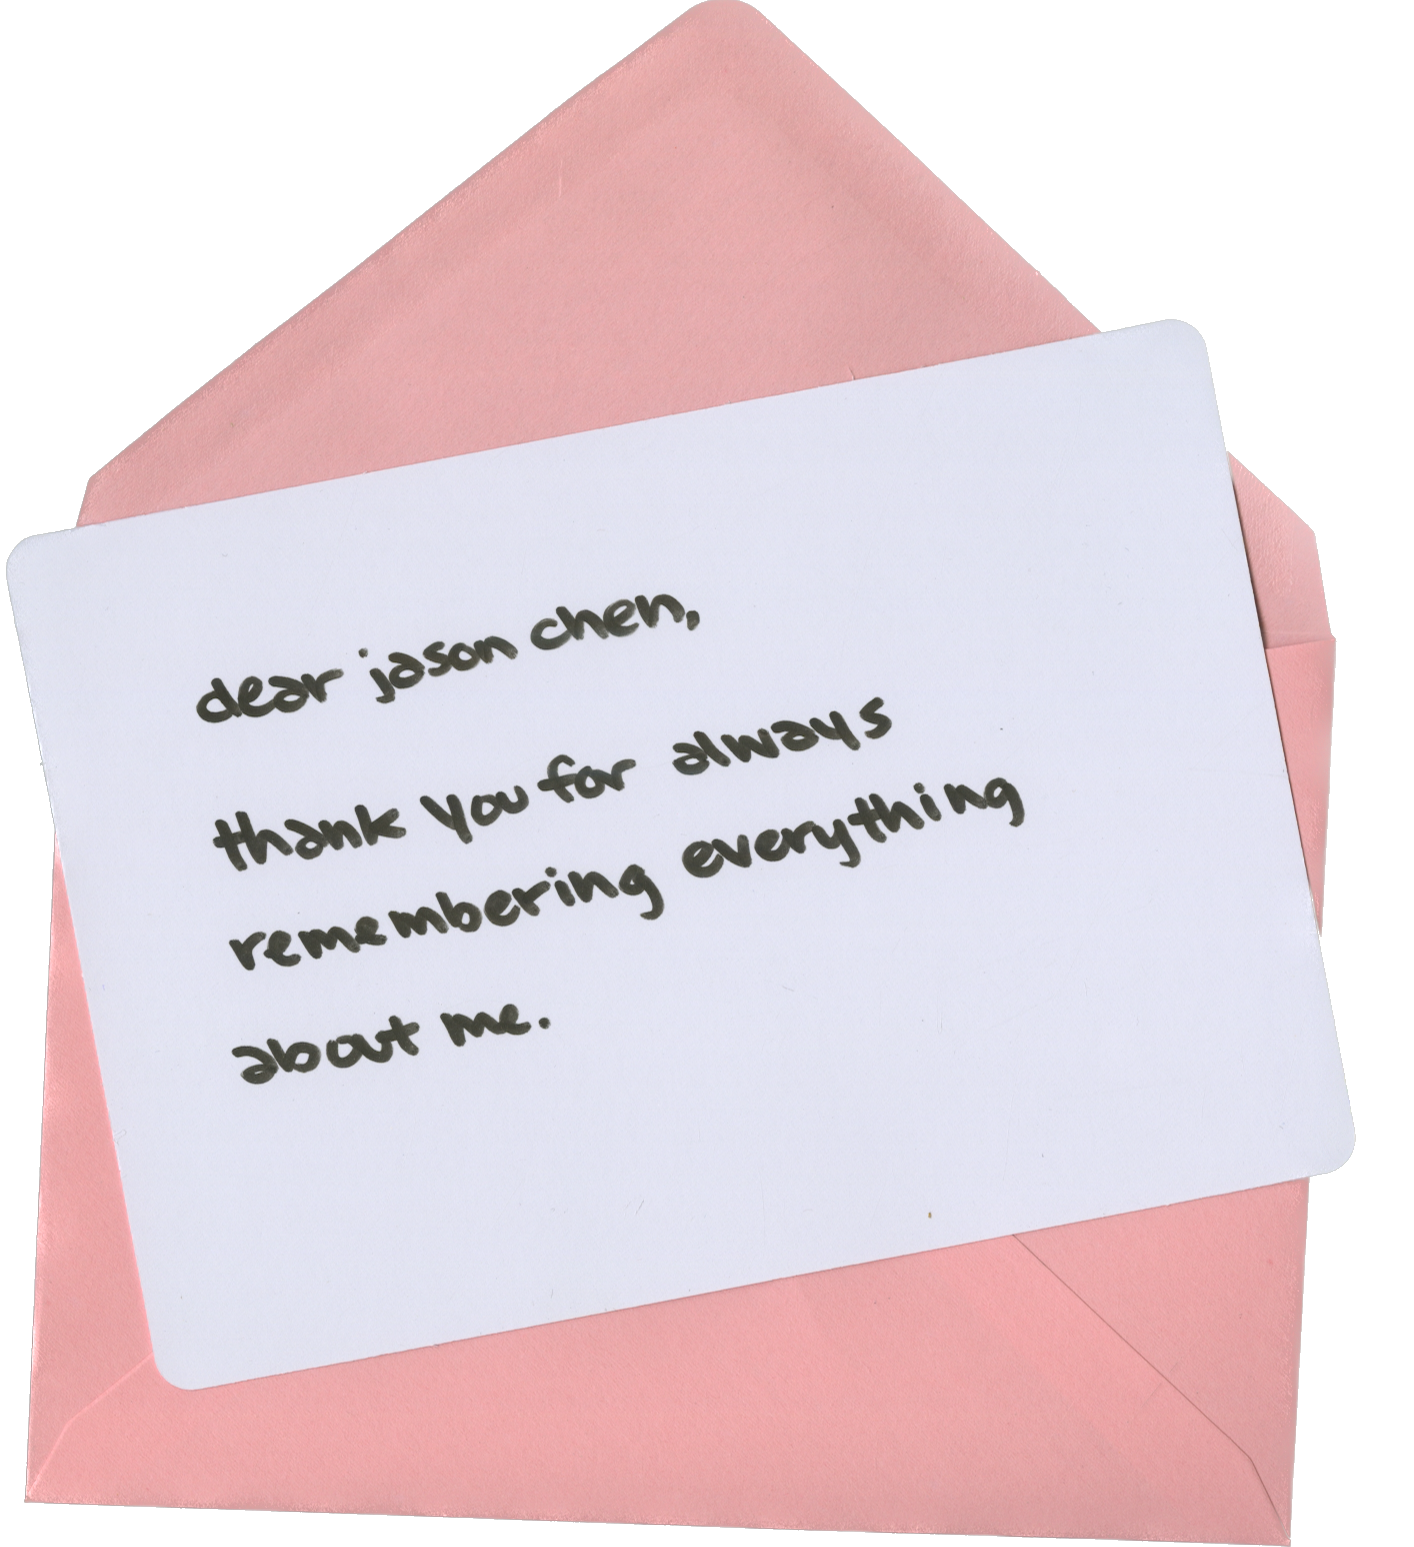 dear jason chen,
thank you for always
remembering everything
about me.